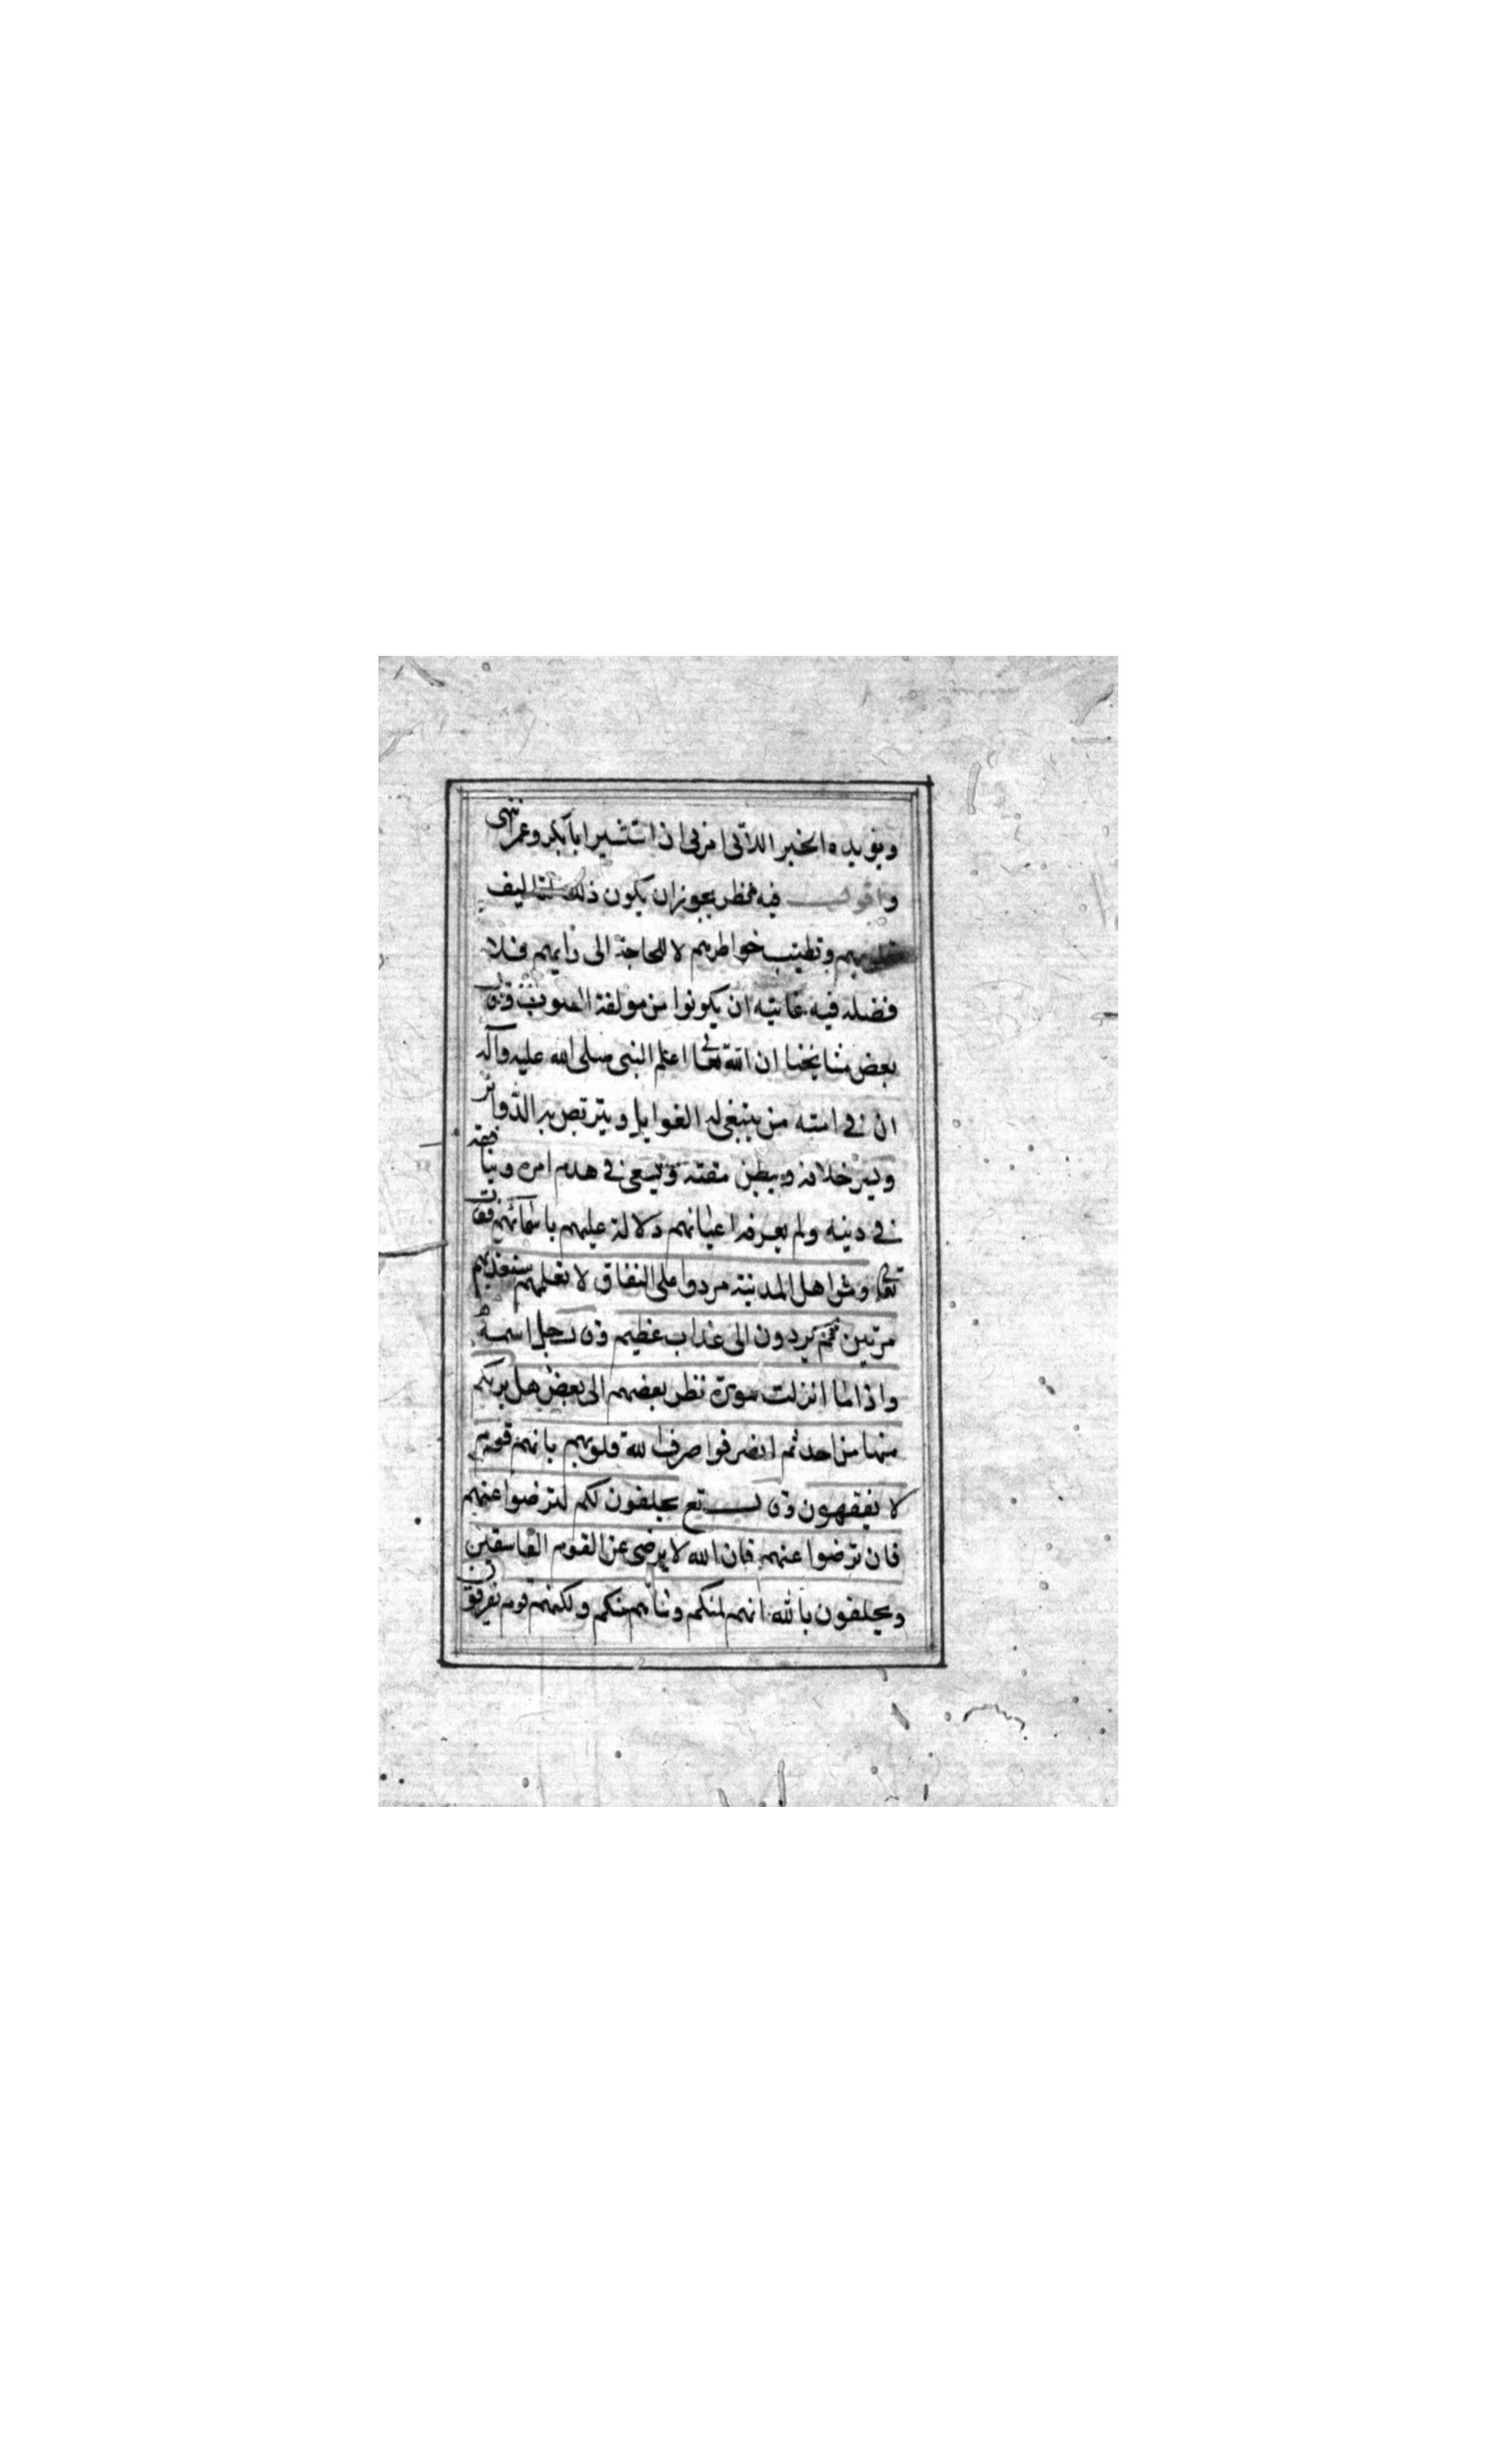 ويؤيده الخبر الاتي امرني ان استشير ابا بكر وعمر انتهى
واقول فيه نظر يجوز ان يكون ذلك لتاليف
قلوبهم وتطييب خواطرهم لا للحاجة الى رايهم فلا
فضيلة فيه غايته ان يكونوا من مولفة القلوب وقال
بعض مشايخنا ان الله تعالى اعلم النبي صلى الله عليه وآله
ان في امته من يبتغي له الغوايل ويتربص به الدوائر
ويسر خلافه ويبطن مقته ويسعى في هدم امره وينافقه
في دينه ولم يعرفه اعيانهم دلالة عليهم باسمائهم فقال
تعالى ومن اهل المدينة مردوا على النفاق لا تعلمهم سنعذبهم
مرتين ثم يردون الى عذاب عظيم وقال جل اسمه
واذا ما انزلت سورة نظر بعضهم الى بعض هل يريكم
منها من احد ثم انصرفوا صرف الله قلوبهم بانهم قوم
لا يفقهون وقال تع يحلفون لكم لترضوا عنهم
فان ترضوا عنهم فان الله لا يرضى عن القوم الفاسقين
ويحلفون بالله انهم لمنكم وما هم منكم ولكنهم قوم يفرقون